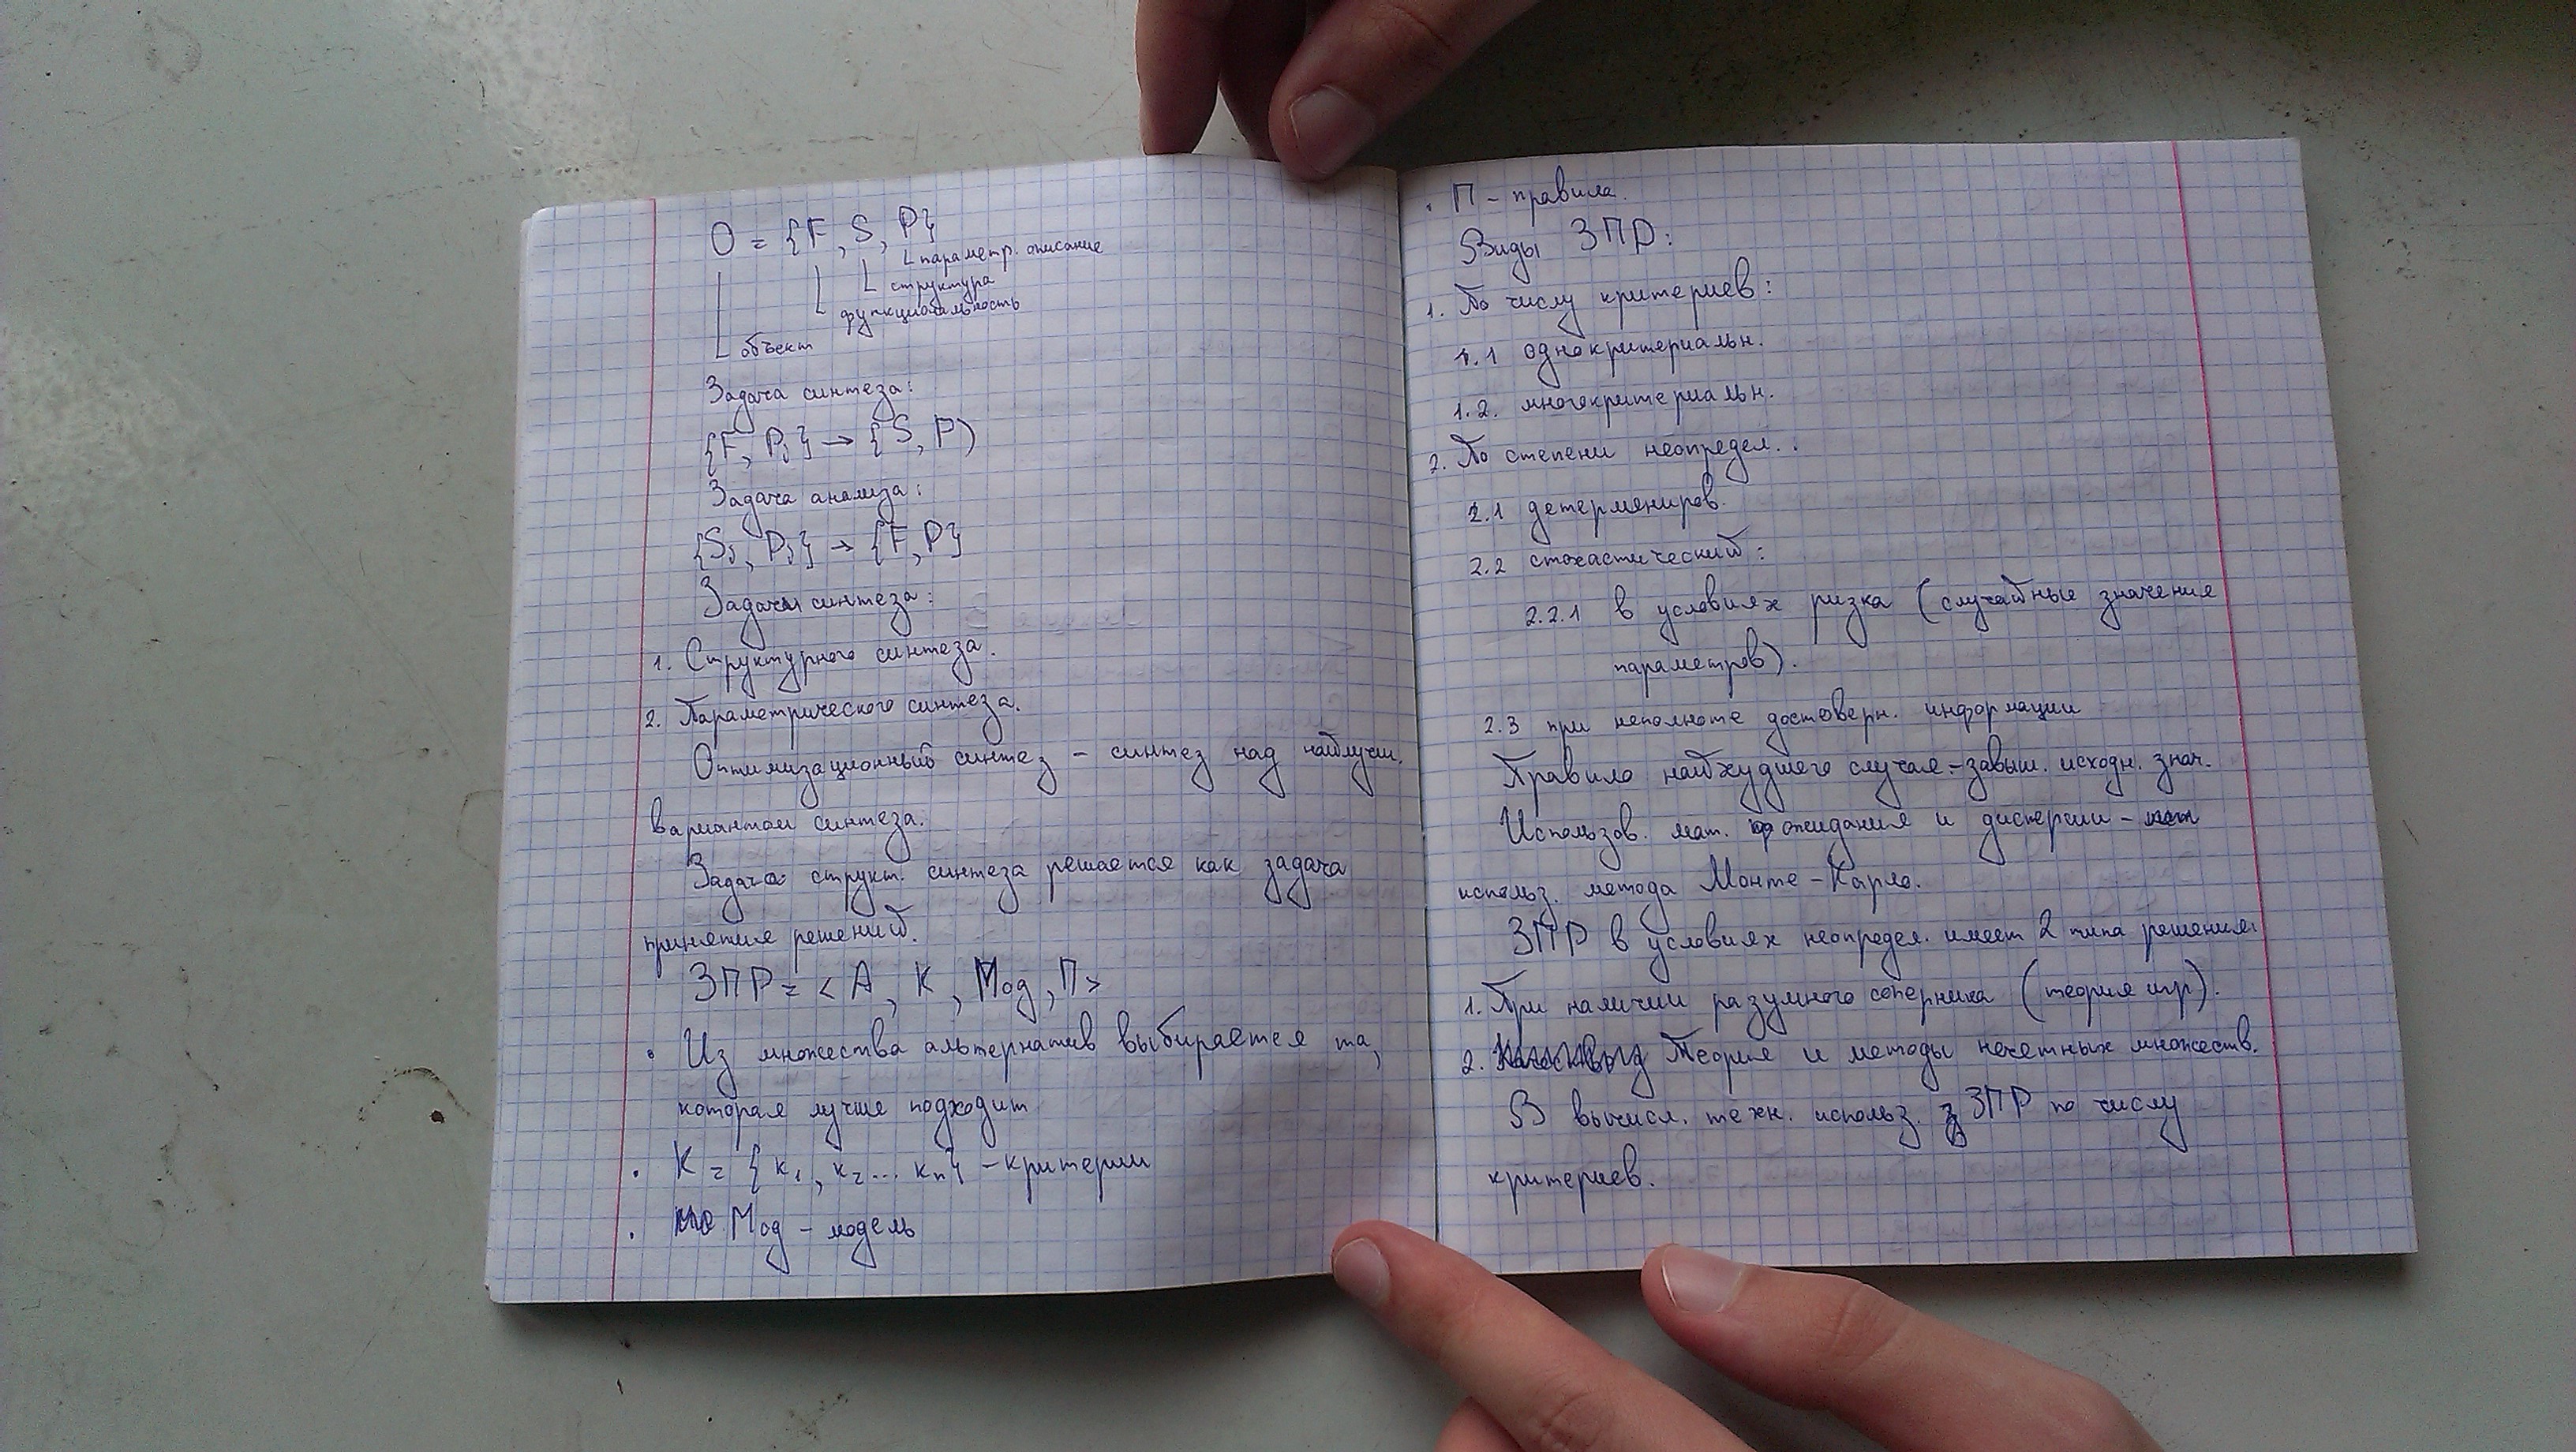 O = {F, S, P}
параметр. описание
структура
функциональность
объект
Задача синтеза:
{F, Pj} → {S, P)
Задача анализа:
{Sj, Pj} → {F, P}
Задачи синтеза:
1. Структурного синтеза.
2. Параметрического синтеза.
Оптимизационный синтез – синтез над наилучш.
вариантом синтеза.
Задача структ. синтеза решается как задача
принятия решений.
ЗПР = < А, К, Мод, П>
• Из множества альтернатив выбирается та,
которая лучше подходит
• К = { к1, к2... кn} – критерии
• Мод – модель
• П – правила.
Виды ЗПР:
1. По числу критериев:
1.1 однокритериальн.
1.2. многокритериальн.
2. По степени неопредел. .
2.1 детермениров.
2.2 стохастический:
2.2.1 в условиях ризка (случайные значения
параметров).
2.3 при неполноте достоверн. информации
Правило найхудшего случая – завыш. исходн. знач.
Использов. мат. ожидания и дисперсии –
использ. метода Монте – Карло.
ЗПР в условиях неопредел. имеет 2 типа решения:
1. При наличии разумного соперника (теория игр).
2. Теория и методы нечетных множеств.
В вычисл. техн. использ. ЗПР по числу
критериев.